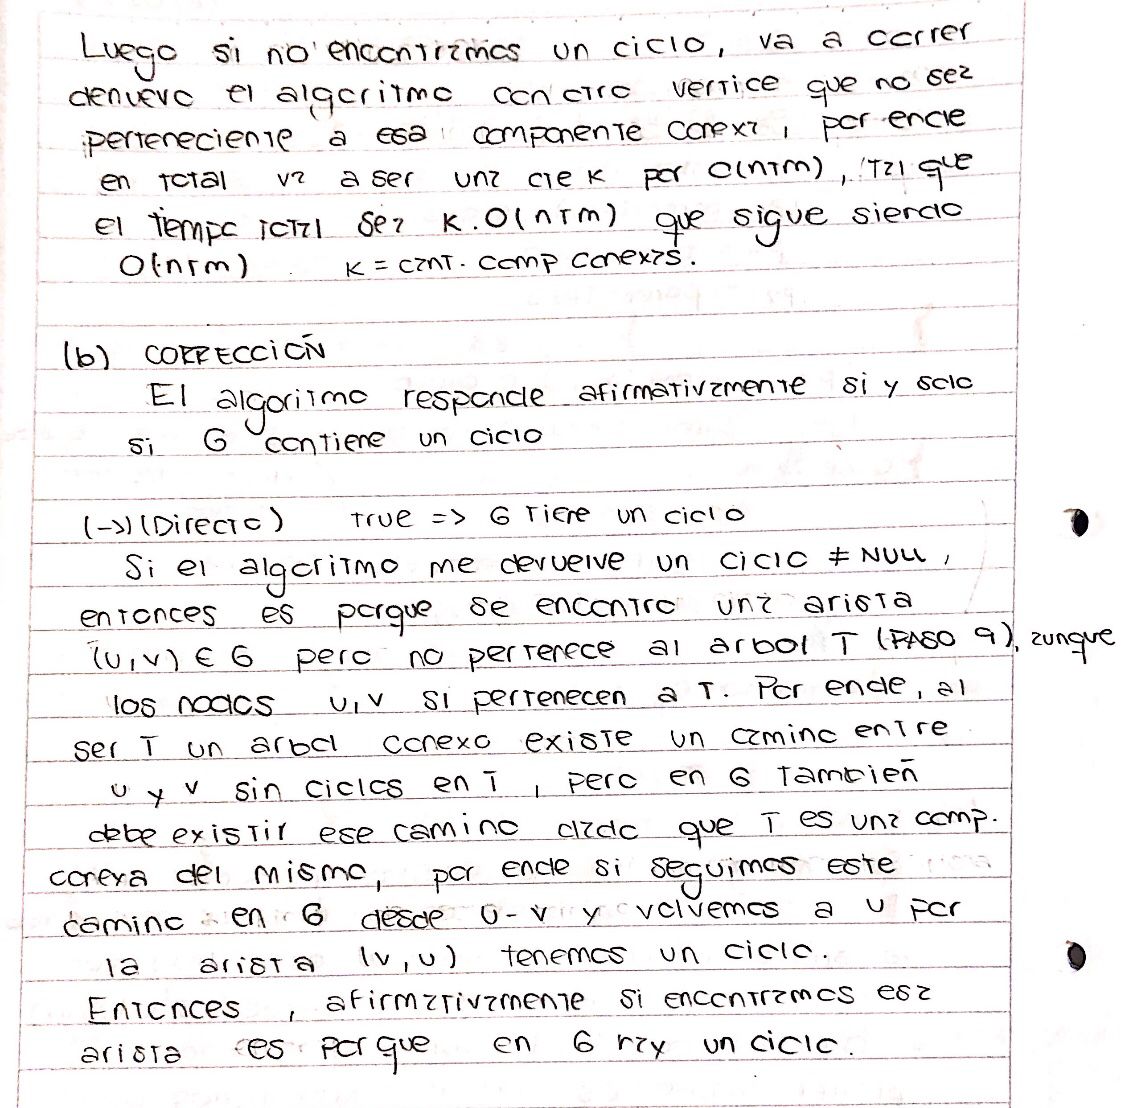 Luego si no encontramos un ciclo, va a correr
denuevo el algoritmo con otro vertice que no sea
perteneciente a esa componente conexa, por ende
en total va a ser una de K por O(n+m), tal que
el tiempo total sea K.O(n+m) que sigue siendo
O(n+m) K = cant. comp conexas.
(b) CORRECCIÓN
El algoritmo responde afirmativamente si y solo
si G contiene un ciclo
(->) (Directo) True => G tiene un ciclo
Si el algoritmo me devuelve un ciclo ≠ NULL,
entonces es porque se encontro una arista
(u,v) ∈ G pero no pertenece al arbol T (PASO 9), aunque
los nodos u,v si pertenecen a T. Por ende, al
ser T un arbol conexo existe un camino entre
u y v sin ciclos en T, pero en G también
debe existir ese camino dado que T es una comp.
conexa del mismo, por ende si seguimos este
camino en G desde u-v y volvemos a u por
la arista (v,u) tenemos un ciclo.
Entonces, afirmativamente si encontramos esa
arista es por que en G hay un ciclo.